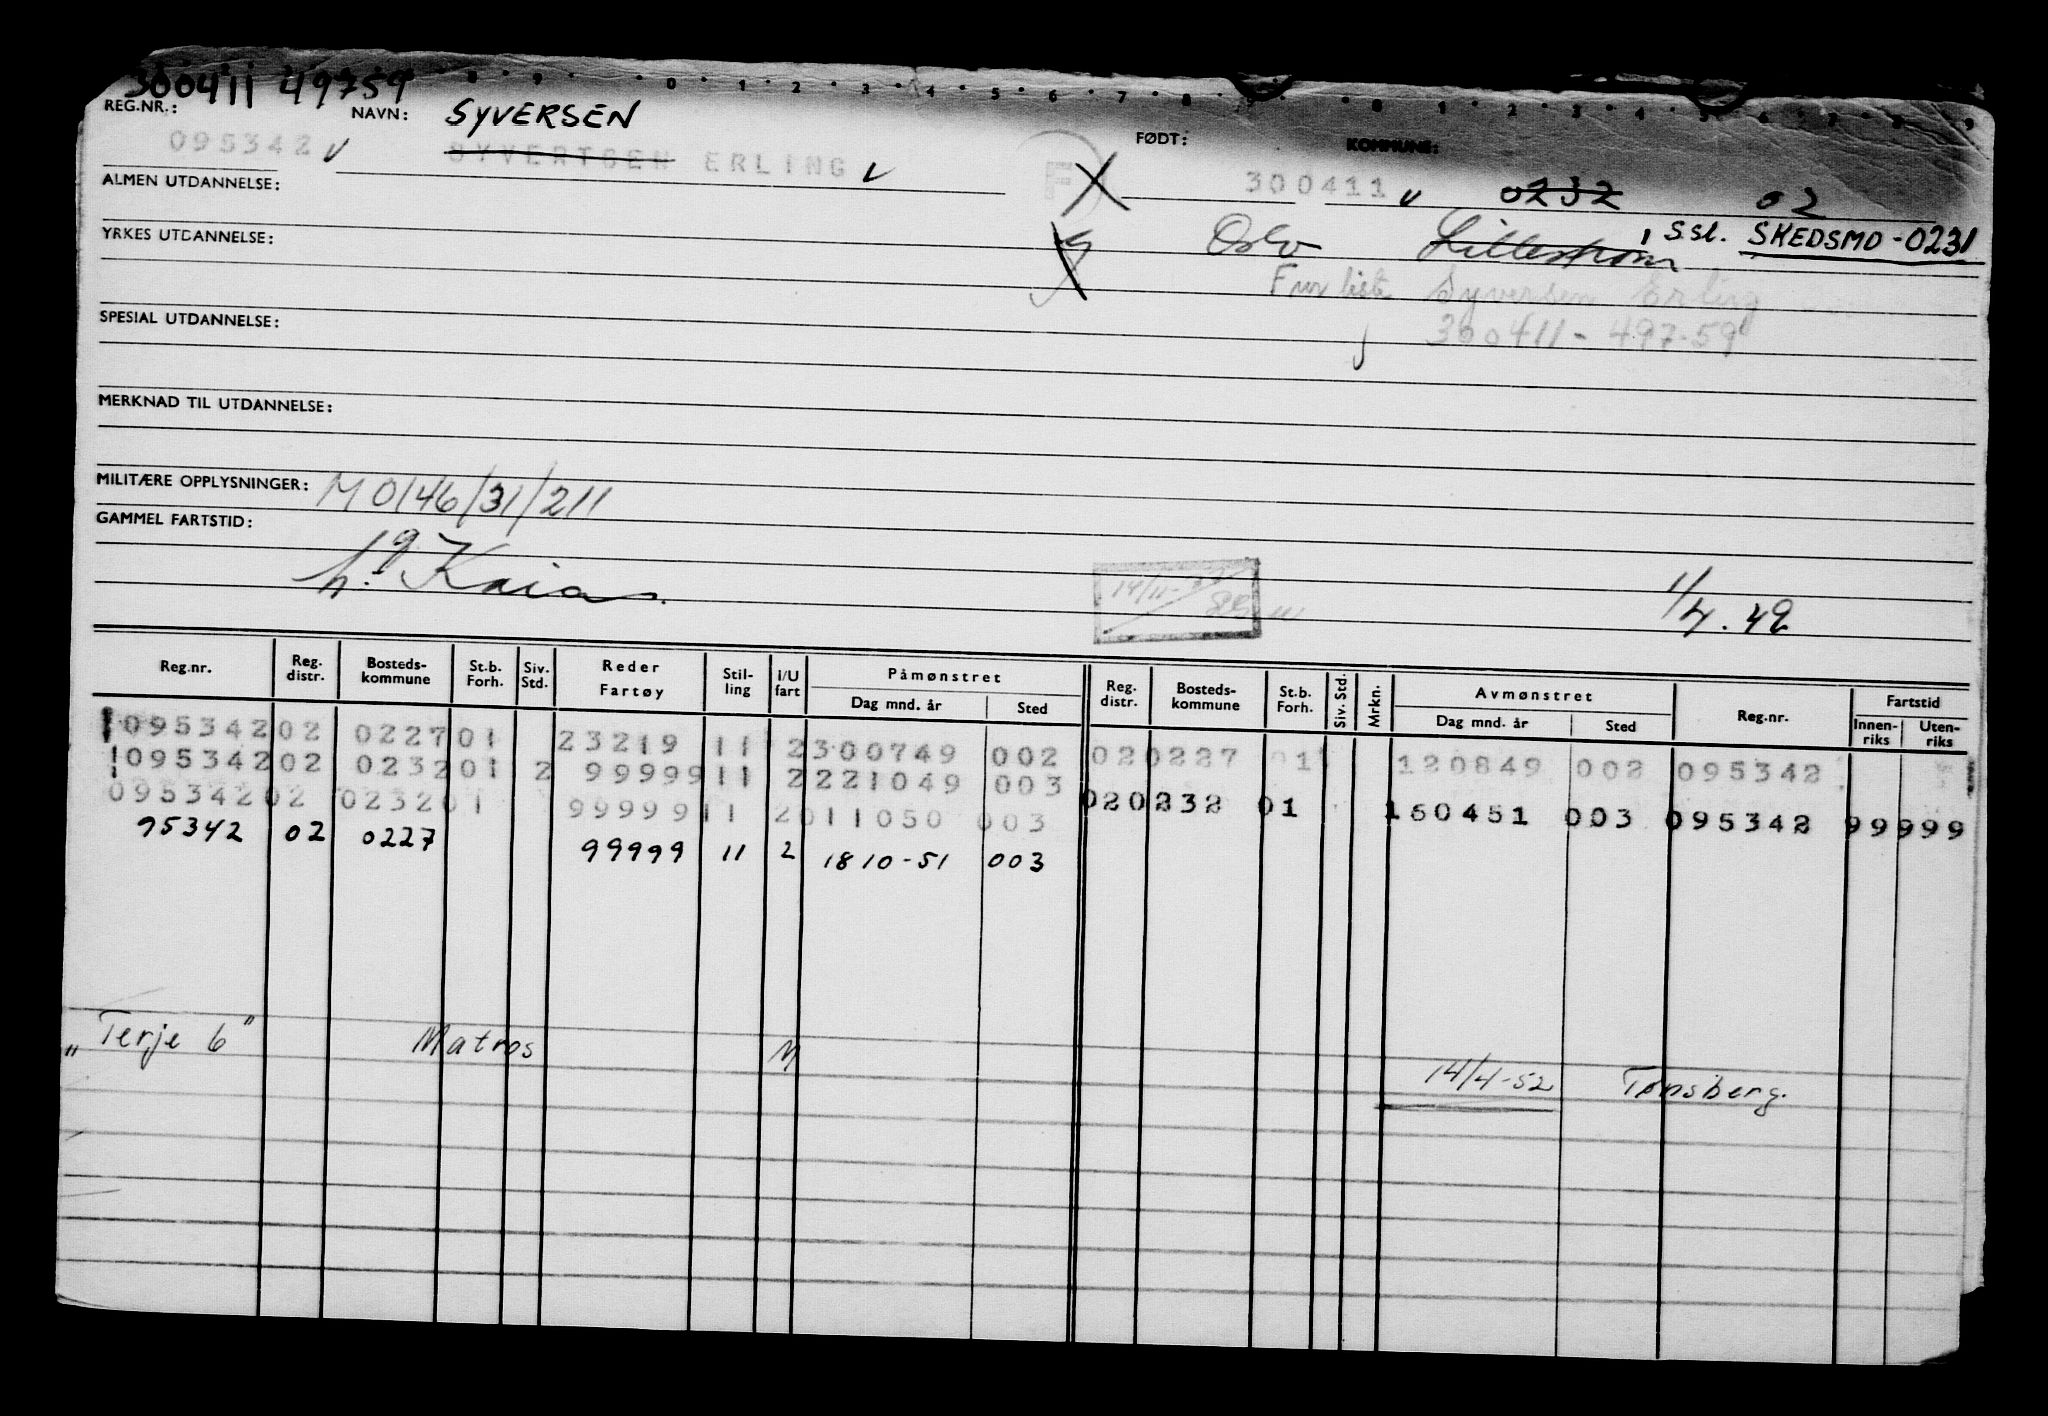 300411 49759
REG.NR.: NAVN: SYVERSEN FØDT: KOMMUNE:
095342 SYVERTSEN ERLING F 300411 0232 02
ALMEN UTDANNELSE:
Oslo Lillestrøm, S.sl. SKEDSMO-0231
YRKES UTDANNELSE:
Syversen Erling
300411-497-59
SPESIAL UTDANNELSE:
MERKNAD TIL UTDANNELSE:
MILITÆRE OPPLYSNINGER: M 0146/31/211
GAMMEL FARTSTID:
Kaia
Reg.nr. Reg. distr. Bosteds-kommune St.b. Forh. Siv. Std. Reder Fartøy Stil-ling I/U fart Påmønstret Dag mnd. år Sted Reg. distr. Bosteds-kommune St.b. Forh. Siv. Std. Mrkn. Avmønstret Dag mnd. år Sted Reg.nr. Fartstid Innen-riks Uten-riks
095342 02 0227 01 23219 11 2 300749 002 02 0227 01 120849 002 095342
095342 02 0232 01 2 99999 11 2 221049 003
095342 02 0232 01 99999 11 2 011050 003 02 0232 01 160451 003 095342 99999
95342 02 0227 99999 11 2 18 10-51 003
"Terje 6" Matros M 14/4-52 Tønsberg.